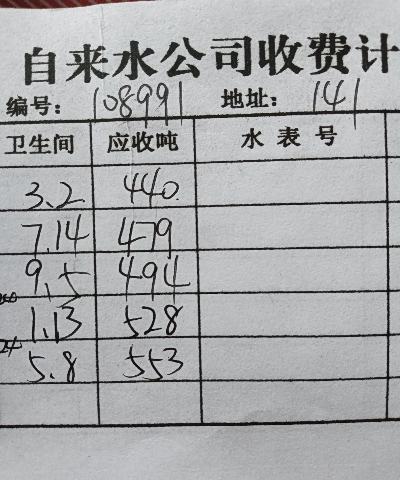 自来水公司收费计
编号: 108991 地址: 141
卫生间 应收吨 水表号
3.2 440
7.14 479
9.5 494
1.13 528
5.8 553